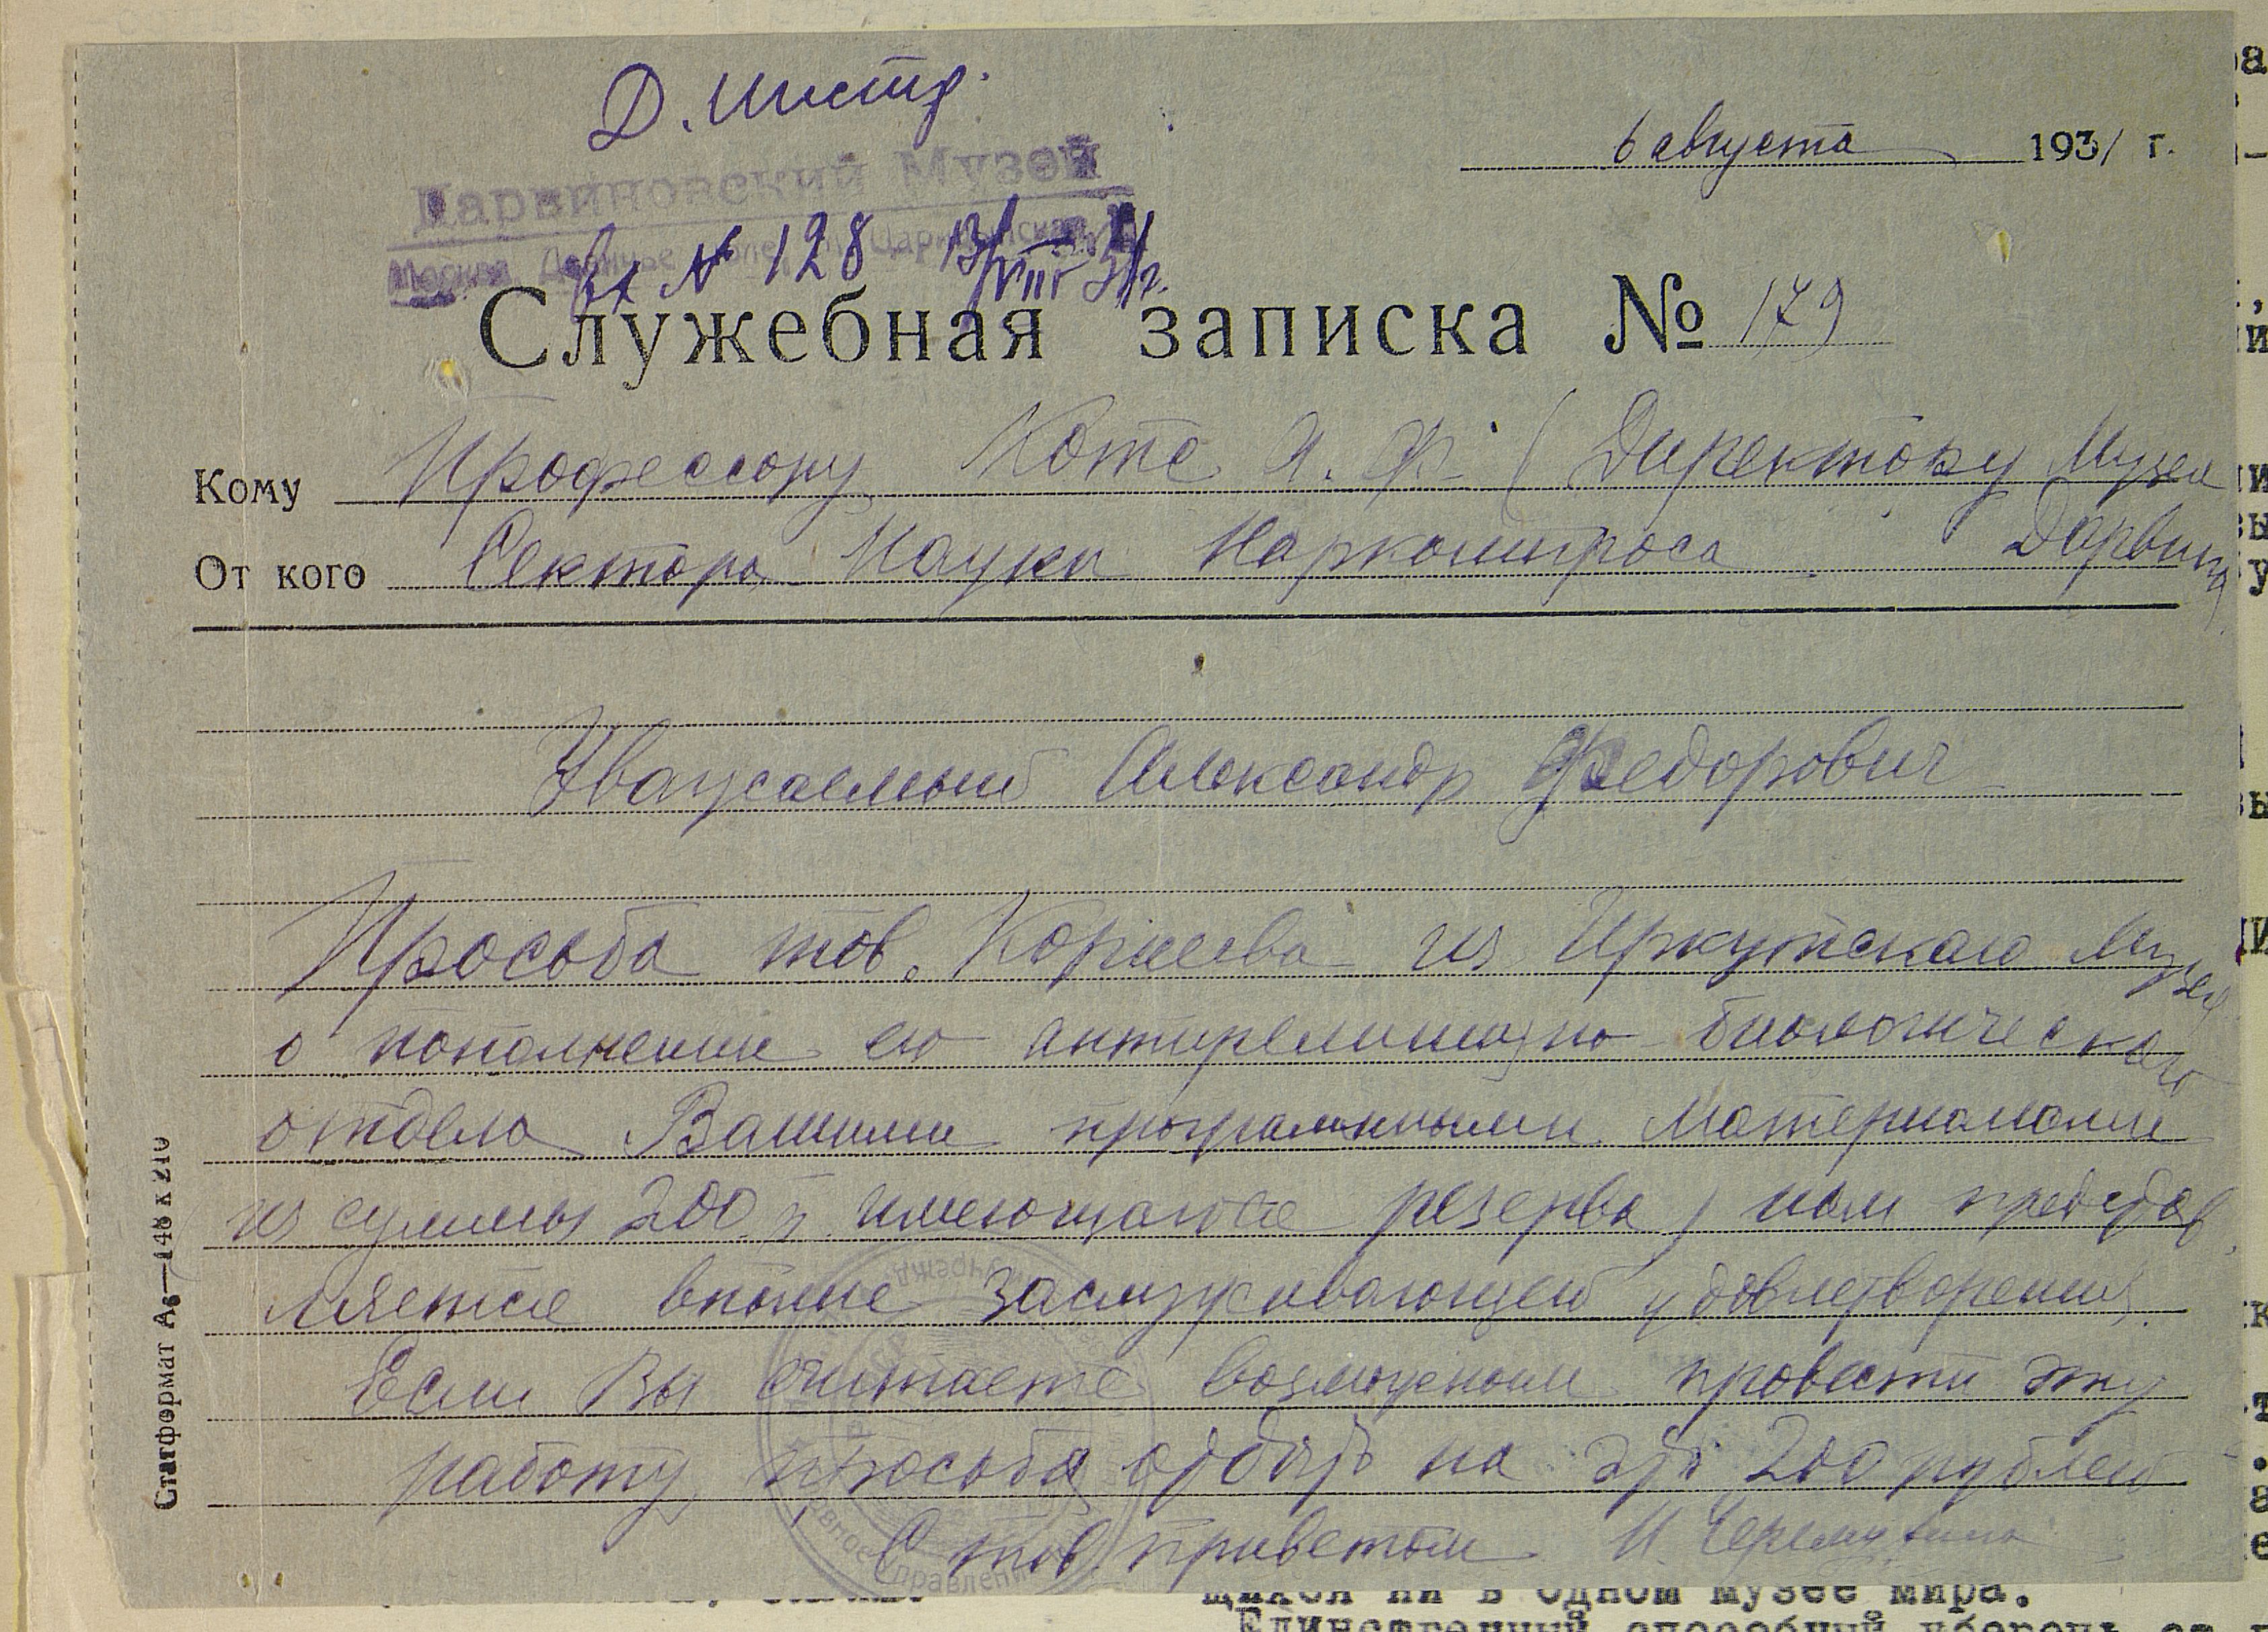 Д. Инстр.
6 августа 1931 г.
Дарвиновский Музей
Москва, Девичье поле
Вх № 128 13/VIII 31 г.
Служебная записка № 179
Кому Профессору Котс А. Ф. (Директору Музея
Дарвина)
От кого Сектора Науки Наркомпроса
Уважаемый Александр Федорович
Просьба тов. Корнеева из Иркутского Музея
о пополнении его антирелигиозно-биологического
отдела Вашими программными материалами
из суммы 200 р. имеющагося резерва, нам представ
ляется вполне заслуживающей удовлетворения.
Если Вы считаете возможным провести эту
работу, просьба на эти 200 рублей
С тов. приветом
Статформат А₅—148 х 210
щихся ни в одном музее мира.